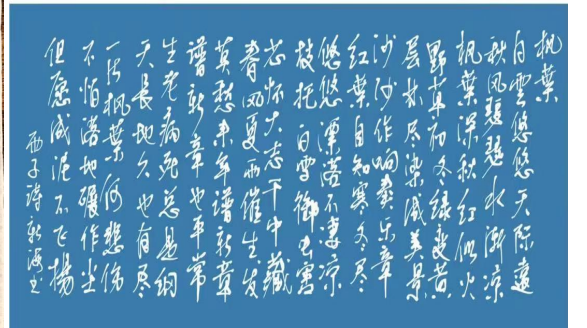 枫叶
白雲悠悠天际遠
秋风飕飕水渐凉
枫叶深秋红似火
野草初冬绿变黄
层林尽染成美景
沙沙作响奏乐章
红葉自知寒冬尽
悠悠漂落不凄凉
枝托白雪御长寒
芯怀大志干中藏
春风夏雨催生发
莫愁来年谱新章
谱新章也平常
生老病死总是纲
天長地久也有尽
一片枫葉何悲伤
不怕落地碾作尘
但愿成泥不飞揚
西子诗新海书